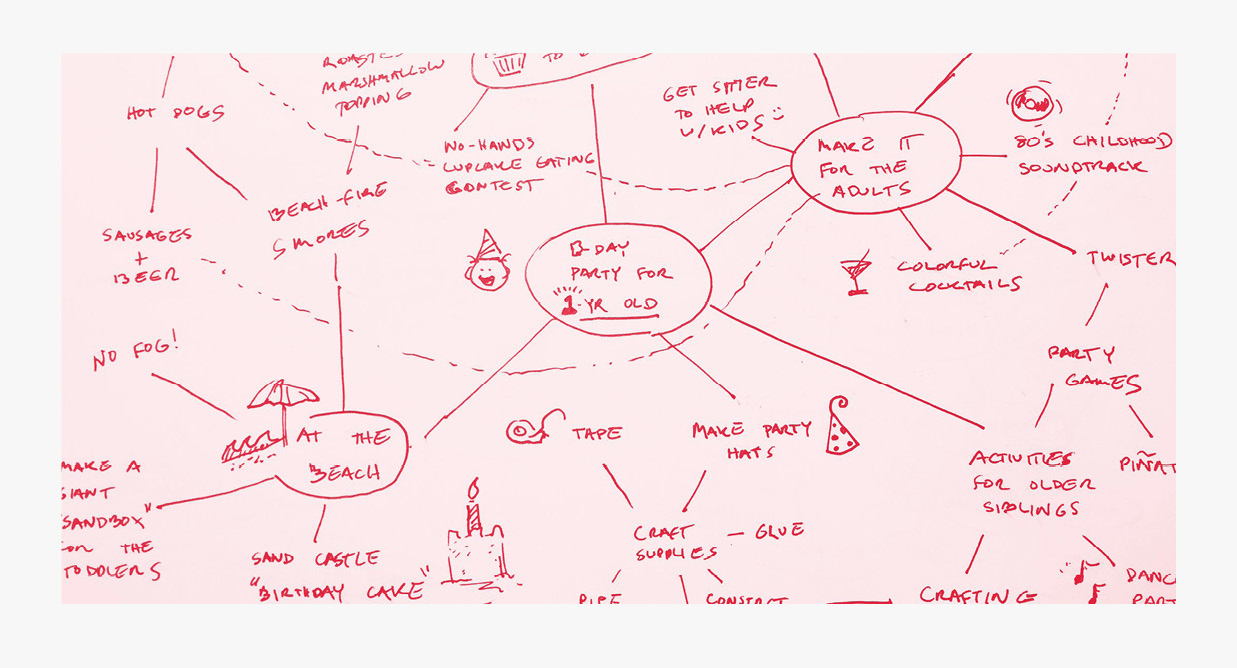 ROASTED
MARSHMALLOW
TOPPING
TO
HOT DOGS
GET SITTER
TO HELP
W/KIDS
NO-HANDS
CUPCAKE EATING
CONTEST
MAKE IT
FOR THE
ADULTS
80'S CHILDHOOD
SOUNDTRACK
BEACH-FIRE
SMORES
SAUSAGES
+
BEER
B-DAY
PARTY FOR
1-YR OLD
COLORFUL
COCKTAILS
TWISTER
NO FOG!
PARTY
GAMES
AT THE
BEACH
TAPE
MAKE PARTY
HATS
ACTIVITIES
FOR OLDER
SIBLINGS
PIÑAT
MAKE A
GIANT
"SANDBOX"
FOR THE
TODDLERS
CRAFT
SUPPLIES
— GLUE
SAND CASTLE
"BIRTHDAY CAKE"
PIPE
CONSTRCT
CRAFTING
DANC
PART